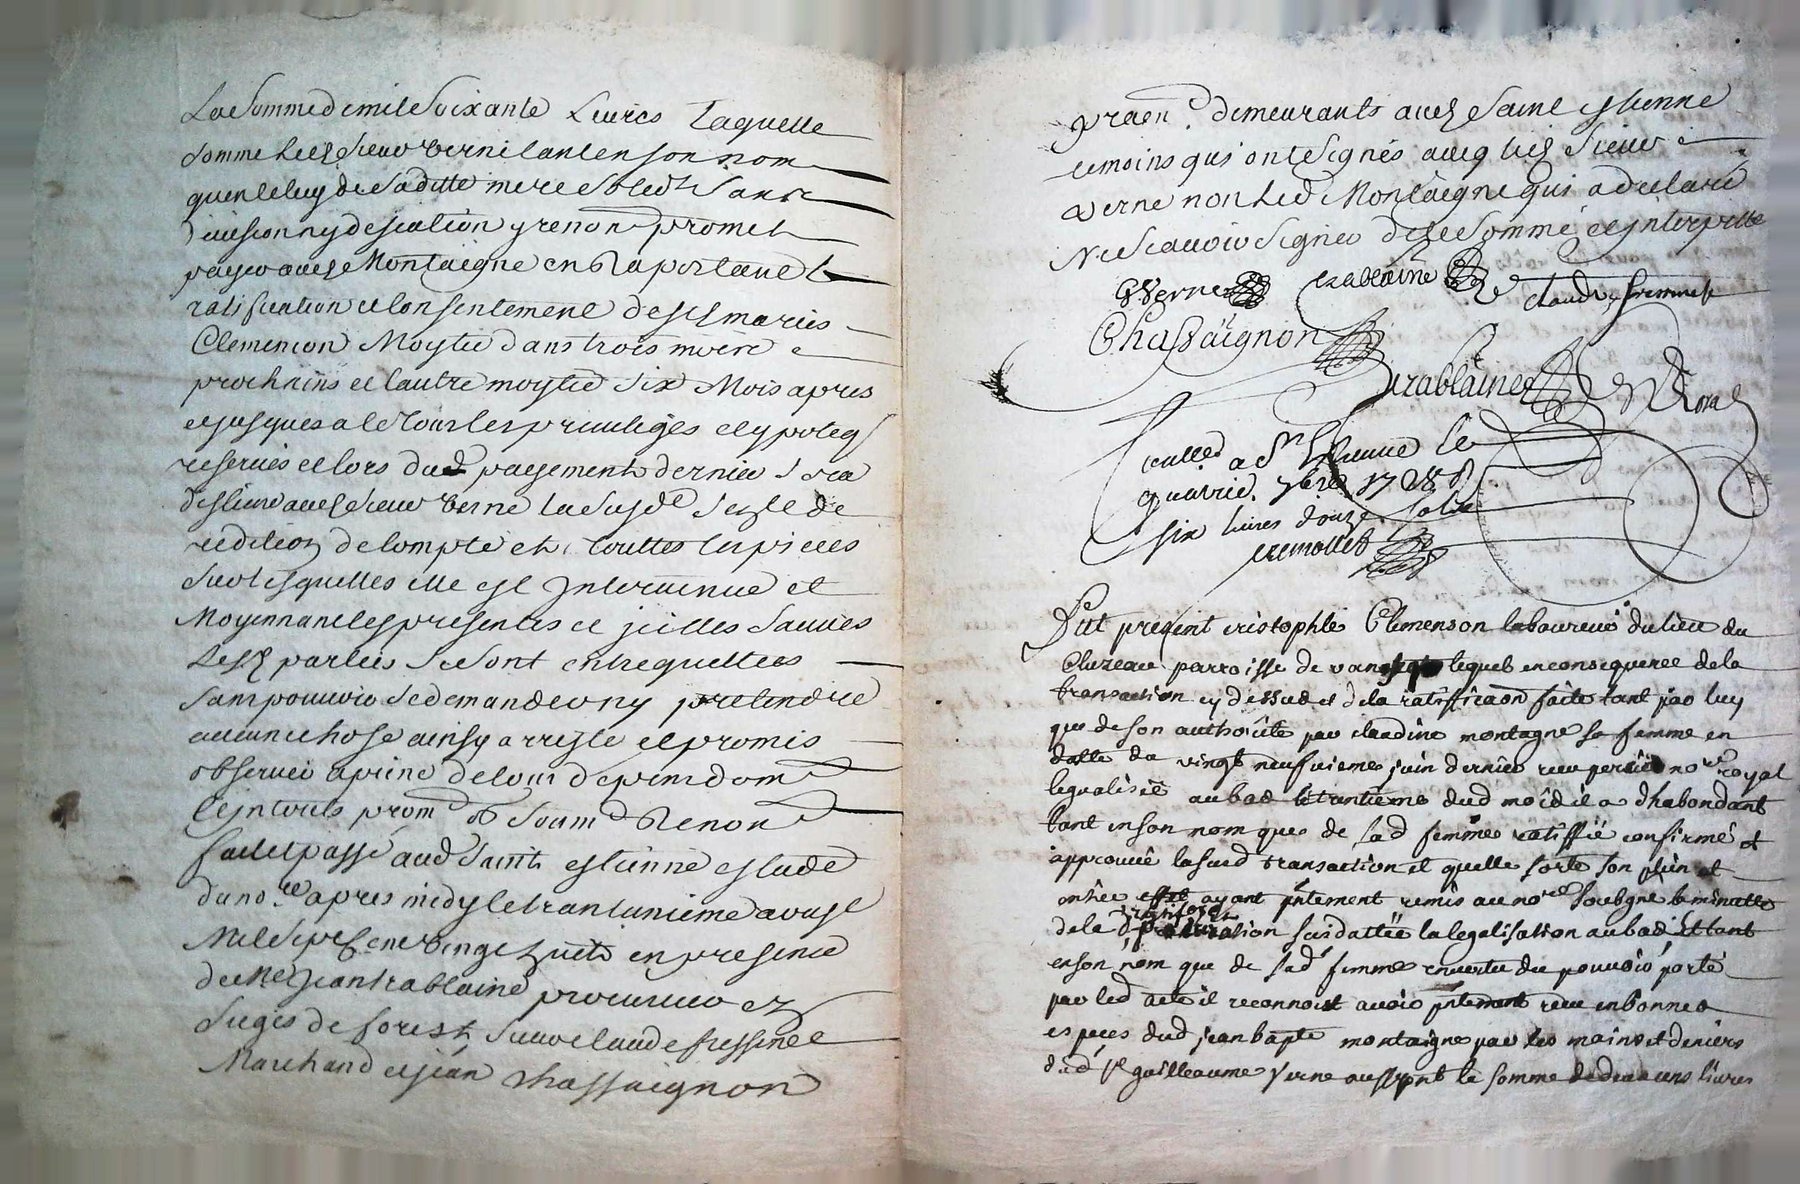 La Somme de mile Soixante Livres Laquelle
Somme led. Sieur verne tant en son nom
quen celuy de Saditte mere Soblet Sans
division ny descution y renon promet
payer aud. Montaigne en Raportant la
ratification et Consentement desd. mariés
Clemencon Moytié dans trois mois
prochains et lautre moytié Six Mois apres
et jusques a ce tous les privileges et ypoteq
reservés et lors dud payement dernier Sera
deslivré aud. Sieur verne la Susde
reddition de Compte et touttes les pieces
Sur lesquelles elle est Intervenue et
Moyennant les presentes et icelles Sauves
Lesd. parties Seront entrequittees
Sans pouvoir Se demander ny pretendre
aucune chose ainsy arresté et promis
observer a peine de tous depens dom
Interests prom ob Soum Renon
fait et passé aud Saint estienne estude
du nore apres midy le trantunieme aoust
Mil Sept Cent vingt huit en presence
de Me Jean trablaine procureur ez
Sieges de forest, Sieur claude fressinet
Marchand et jean Chassaignon
praen. demeurants aud. Saint estienne
temoins qui ont Signés avec led. Sieur
verne non led Montaigne qui a declaré
Ne Scavoir Signer de ce Sommé et Interpellé
G Verne trablaine claude fressinet
Chassaignon
trablaine Nre Royal
Controllé a St Etienne le
quatrie 7bre 1728
six livres douze Sols
cremollet
Fut present cristophle Clemenson laboureur du lieu du
Cluzeau parroisse de lequel en consequence de la
transaction cy dessus et de la ratifficaon faite tant par luy
que de son authorité par claudine montagne sa femme en
datte du vingt neufvieme juin dernier receu nore royal
legualisée au bas le trantieme dud mois il a dhabondant
tant en son nom que de sad femme ratiffié confirmé et
approuvé lasusd transaction et quelle sorte son plein et
entier effet ayant pntement remis au nore soubsgne la minutte
de la ratification susdattée la legalisation au bas Et tant
en son nom que de sad femme en vertu du pouvoir porté
par led acte il reconnoist avoir pntemant receu en bonnes
especes dud jean bapte montaigne par les mains et deniers
dud Sr guilleaume Verne aussy pnt la somme de deux cens livres